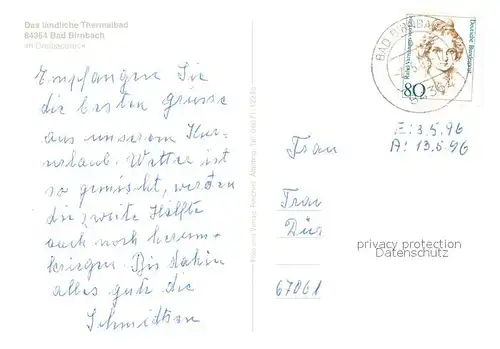 Das ländliche Thermalbad
84364 Bad Birnbach
im Dreibäderdreieck
Empfangen Sie
die besten Grüsse
aus unserem Kur-
urlaub. Wetter ist
so gemischt, werden
die zweite Hälfte
auch noch herum-
kriegen. Bis dahin
alles gute die
Schmidtsen
BAD BIRNBACH
Deutsche Bundespost
80
E: 3.5.96
A: 13.5.96
Frau
Frau
Dür
67061
privacy protection
Datenschutz